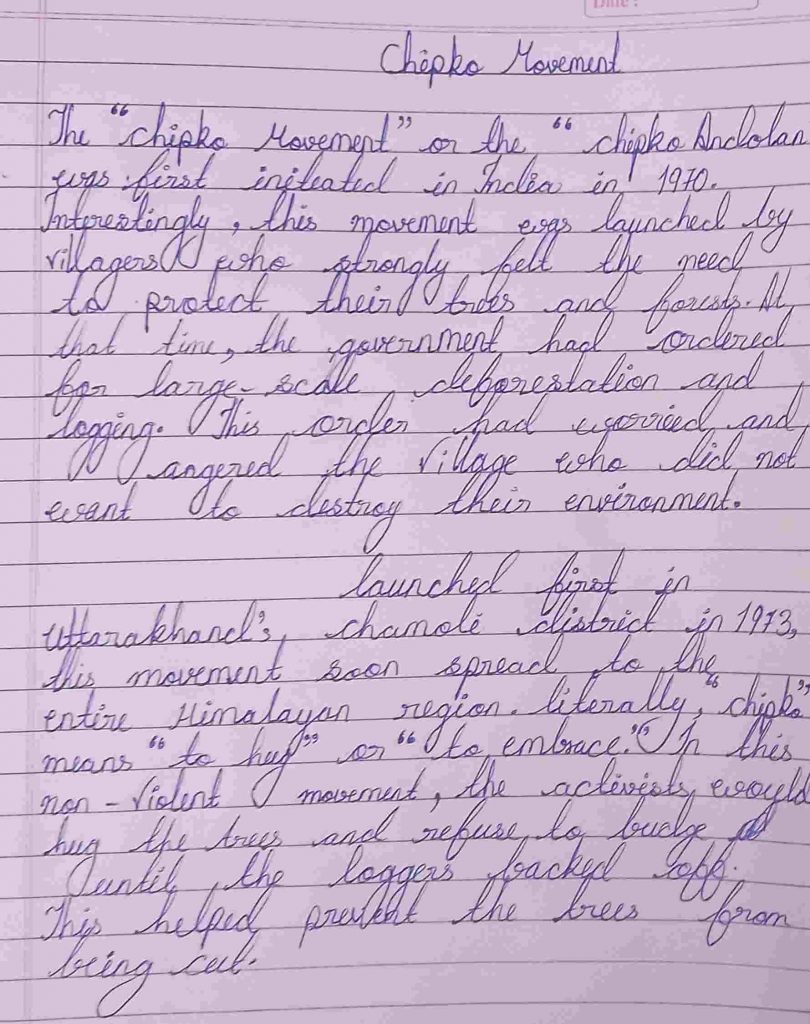 Date :
Chipko Movement
The "chipko Movement" or the "chipko Andolan
was first initeated in India in 1970.
Interestingly, this movement was launched by
villagers who strongly felt the need
to protect their trees and forests. At
that time, the government had ordered
for large-scale deforestation and
logging. This order had worried and
angered the village who did not
want to destroy their environment.
launched first in
Uttarakhand's, chamoli district in 1973,
this movement soon spread to the
entire Himalayan region. literally, "chipko"
means "to hug" or "to embrace." In this
non-violent movement, the activists would
hug the trees and refuse to budge
until the loggers backed off.
This helped prevent the trees from
being cut.